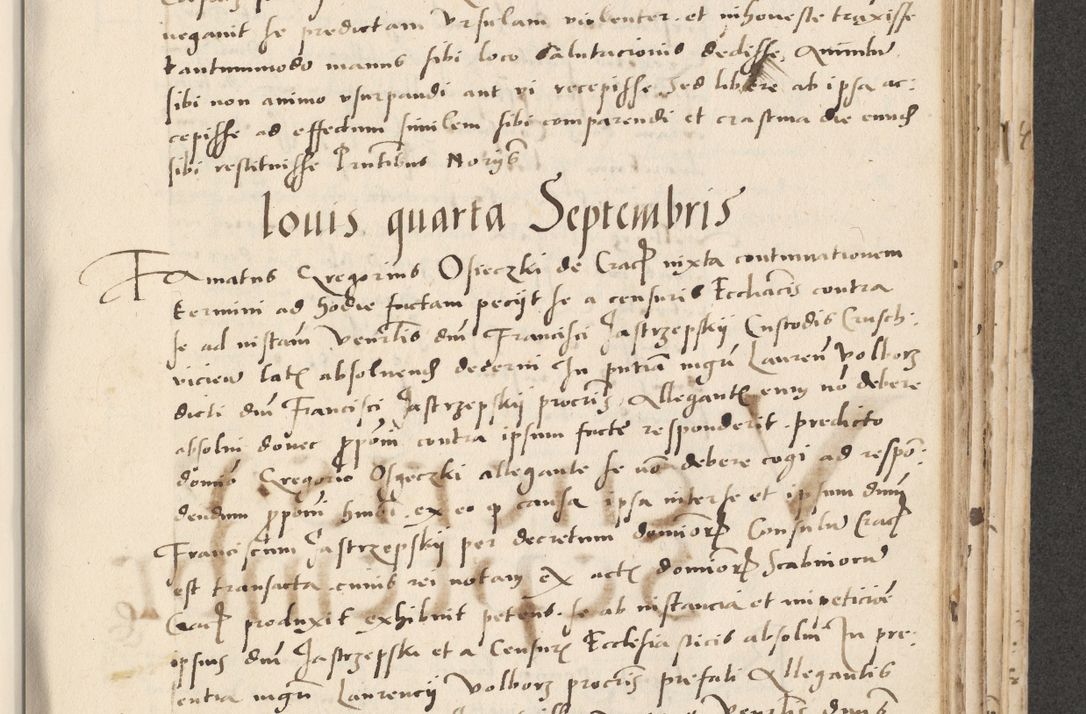 negavit se predictam Ursulam violenter et inhoneste traxisse
tantummodo manus sibi loco salutacionis dedisse,
sibi non animo usurpandi aut vi recepisse Sed libere ab ipsa ac:
cepisse ad effectum similem sibi comparendi et crastina die
sibi restituisse
Iovis quarta Septembris
Famatus Gregorius Osieczki de Crac iuxta continuationem
termini ad hodie factam peciit se a censuris Eccliacis contra
se ad instam Venerlis dni Francisci Jastrzepskij Custodis Crusch:
vicien latis absolvend decerni In pntia mgri Lauren Volborz
dicti dni Francisci Jastrzepskij procris Allegantis eum no debere
absolvi donec pposni contra ipsum facte responderit. predicto
domno Gregorio Osyeczki allegante se non debere cogi ad respo:
dendum ppositioni ex eo q causa ipsa inter se et ipsum dnm
Franciscum Jastrzepskij per decretum dominor Consulu Crac
est transacta cuius rei notam ex actis dominor Scabinoru
Crac produxit exhibuit petens se ab instancia et impeticioe
ipsius dni Jastrzepski et a Censuris Ecclesiasticis absolvi In pre:
sentia mgri Laurencij Volborz procris prefati Allegantis